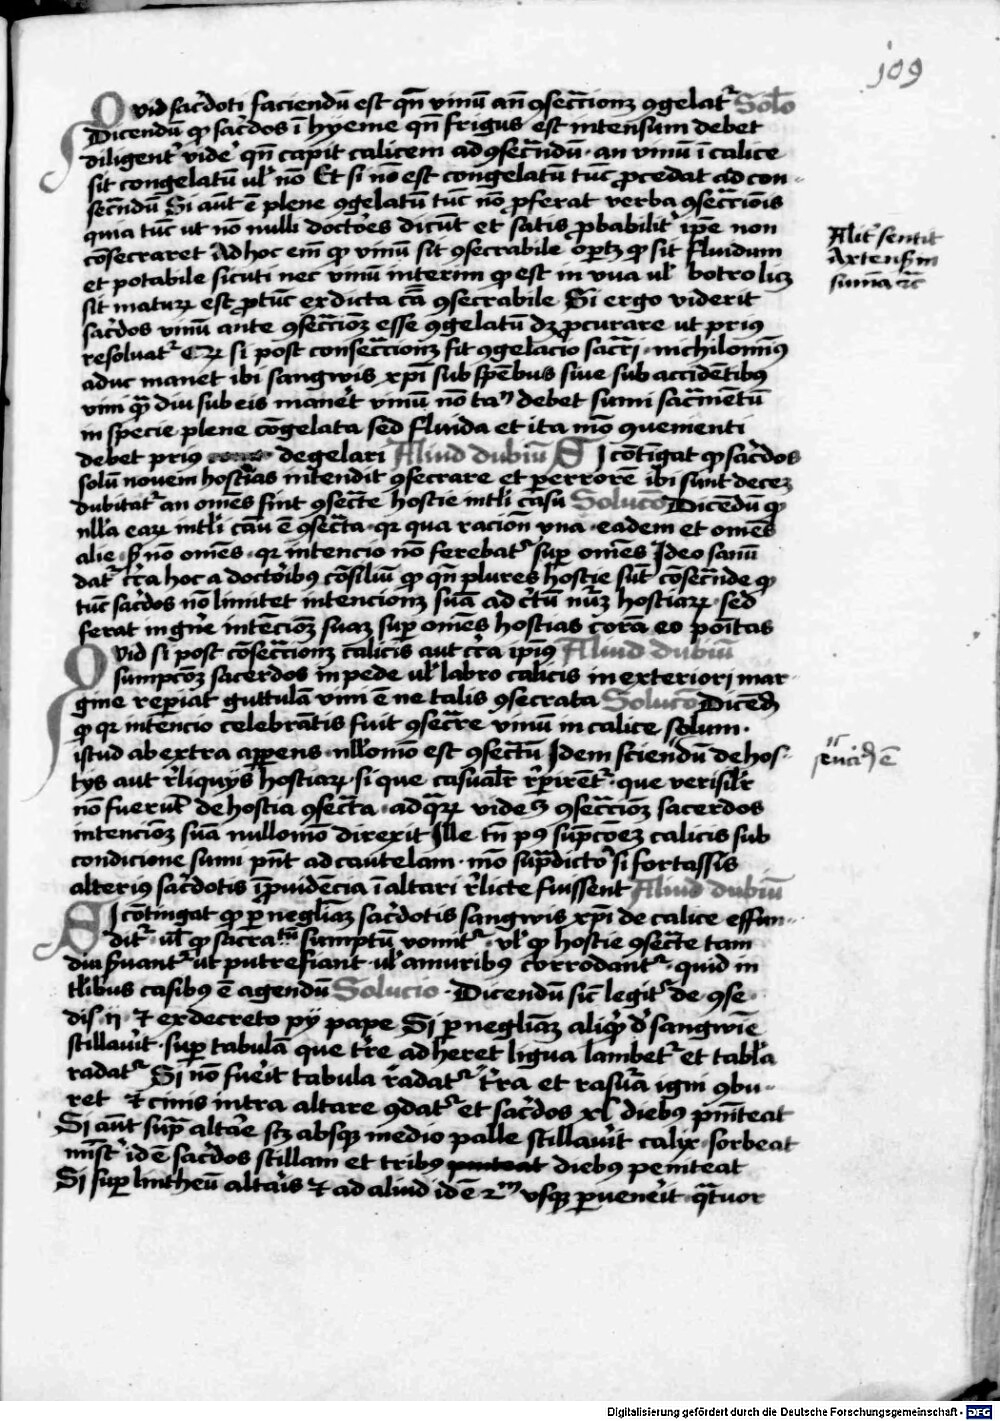 109
Quid sac̄doti faciendū est qn̄ vinū an̄ ꝯsecrac̄ionꝫ ꝯgelat᷑ Solo
Dicendū ꝙ sac̄dos ī hyeme qn̄ frigus est intensum debet
diligent᷑ vide᷑ qn̄ capit calicem ad ꝯsecrandū · an vinū ī calice
sit congelatū ul̄ nō Et si nō est congelatū tūc ꝓcedat ad con-
secn̄dū Si aūt ē plene ꝯgelatū tūc nō ꝓferat verba ꝯsecrac̄ionis
quia tūc ut nō nulli doctōes dicūt et satis ꝓbabilit᷑ ip̄e non
cōsecraret Ad hoc em̄ ꝙ vinū sit ꝯsecrabile oportꝫ ꝙ sit fluidum
et potabile sicuti nec vinū interim ꝙ est in vua ul̄ botro licꝫ
sit maturꝫ est ꝓtūc ex dicta cā ꝯsecrabile Si ergo viderit
sac̄dos vinū ante ꝯsecrac̄ionꝫ esse ꝯgelatū dꝫ ꝓcurare ut priꝰ
resoluat᷑ si post consecrac̄ionꝫ fit ꝯgelacio sac̄ri · nichilominꝰ
aduc manet ibi sangwis xp̄i sub sp̄ēbus siue sub accidētibꝰ
vini qm̄ diu sub eis manet vinū nō tn̄ debet sumi sac̄mētū
in specie plene cōgelata sed fluida et ita mō ꝯuenienti
debet priꝰ degelari Aliud dubiū SI cōtīgat ꝙ sac̄dos
solū novem hostias intendit ꝯsecrare et per errorē ibi sunt decē
dubitat᷑ an omēs sint ꝯsec̄te hostie in tl̄i casu Solucō Dicēdū ꝙ
nll̄a earꝫ in tl̄i cāu ē ꝯsec̄ta · qꝛ qua racion̄ vna · eadem et omēs
alie · sꝫ nō omēs · qꝛ intencio nō ferebat᷑ suꝑ omēs Ideo sanū
dat᷑ c̄ca hoc a doctōibꝰ cōsiliū ꝙ qn̄ plures hostie sūt cōsecn̄de ꝙ
tūc sac̄dos nō limitet intencionꝫ suā ad c̄tū nūꝫ hostiarꝫ · sed
ferat in gn̄e intēcionꝫ suaꝫ suꝑ omēs hostias corā eo poītas
Quid si post cōsecc̄ionꝫ calicis aut c̄ca ipiꝰ Aliud dubiū
sumpcōꝫ sacerdos in pede ul̄ labro calicis in exteriori mar-
gine reperiat guttulā vini ē ne talis ꝯsecrata Solucō Dicēd̄
ꝙ qꝛ intencio celebrātis fuit ꝯsec̄re vinū in calice solum ·
istud ab extra apꝑens · nll̄omō est ꝯsec̄tū Idem sciendū de hos-
tijs aut r̄liquijs hostiarꝫ · si que casualr̄ rep̄irēt᷑ · que verisilr̄
nō fuerūt de hostia ꝯsec̄ta · ad q̄rꝫ vides ꝯsecc̄ionꝫ sacerdos
intencionꝫ suā nullomō direxit Ille tn̄ pꝰ sūpcōeꝫ calicis sub
condicione sumi pn̄t ad cautelam · mō sup̄dicto si fortassis
alteriꝰ sac̄dotis īpuidēcia ī altari r̄licte fuissent Aliud dubiū
SI cōtingat ꝙ ꝑ neglīaꝫ sac̄dotis sangwis xp̄i de calice effun-
dit᷑ · ul̄ ꝙ sacratū sumptū vomit᷑ · vl̄ ꝙ hostie ꝯsec̄te tam
diu s̄uant᷑ ut putrefiant · ul̄ a muribꝰ corrodant᷑ · quid in
tl̄ibus casibꝰ ē agendū Solucio · Dicendū sic̄ legit᷑ de ꝯse ·
dis · ij · et ex decreto pij pape Si ꝑ neglīaꝫ aliqd̄ d̄ sangwīe
stillauit · suꝑ tabulā que t̄re adheret ligua lambet᷑ et tabl̄a
radat᷑ Si nō fueīt tabula radat᷑ t̄ra et rasu᷑a igni ꝯbu-
ret et cinis intra altare ꝯdat᷑ et sac̄dos xl diebꝰ pnīteat
Si aūt sup̄ altāe scꝫ absqꝫ medio palle stillauīt calyx · sorbeat
minist᷑ id ē sac̄dos stillam et tribꝰ diebꝰ peniteat
Si suꝑ lintheū altāis et ad aliud id ē 2m vsqꝫ ꝑuenīt · qtuor
Alit᷑ sentit
Artensis in
sum̄a ⁊c̄